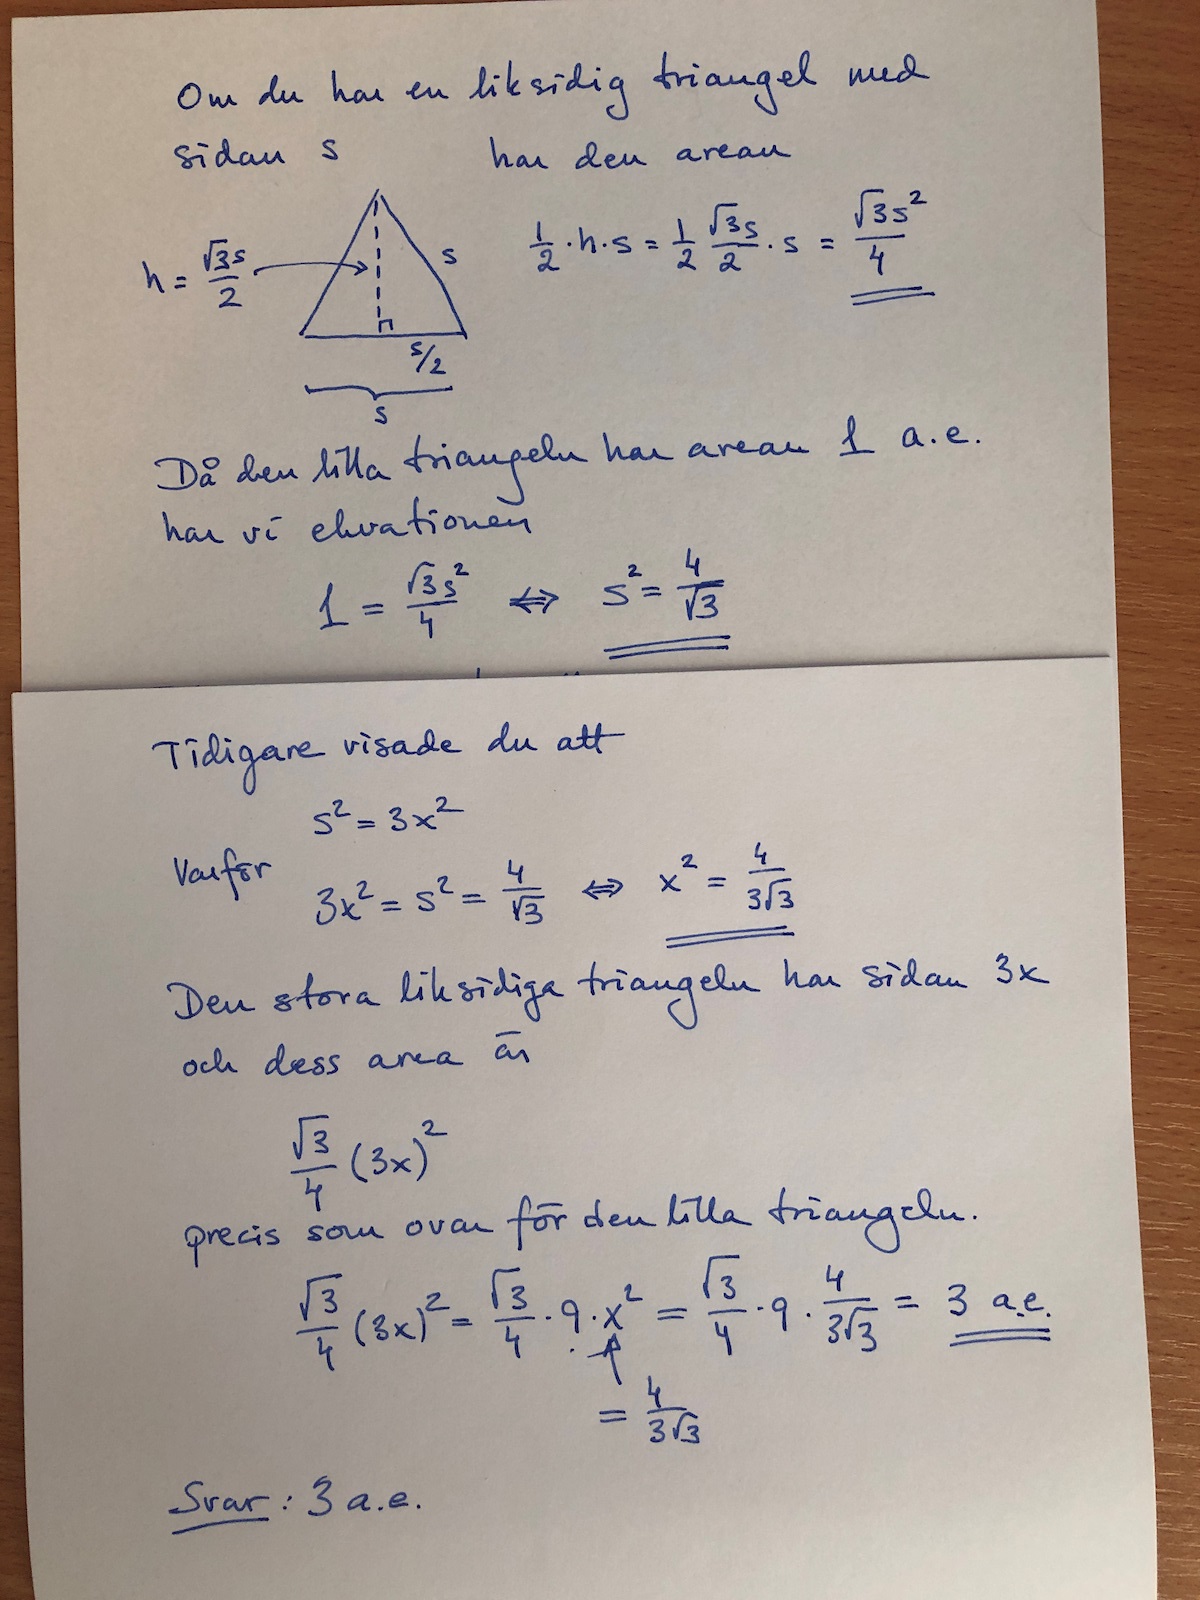 Om du har en liksidig triangel med
sidan s har den arean
h = √3s/2
s
s/2
s
1/2 · h · s = 1/2 √3s/2 · s = √3s²/4
Då den lilla triangeln har arean 1 a.e.
har vi ekvationen
1 = √3s²/4 ⇔ s² = 4/√3
Tidigare visade du att
s² = 3x²
Varför
3x² = s² = 4/√3 ⇔ x² = 4/3√3
Den stora liksidiga triangeln har sidan 3x
och dess area är
√3/4 (3x)²
precis som ovan för den lilla triangeln.
√3/4 (3x)² = √3/4 · 9 · x² = √3/4 · 9 · 4/3√3 = 3 a.e.
= 4/3√3
Svar: 3 a.e.